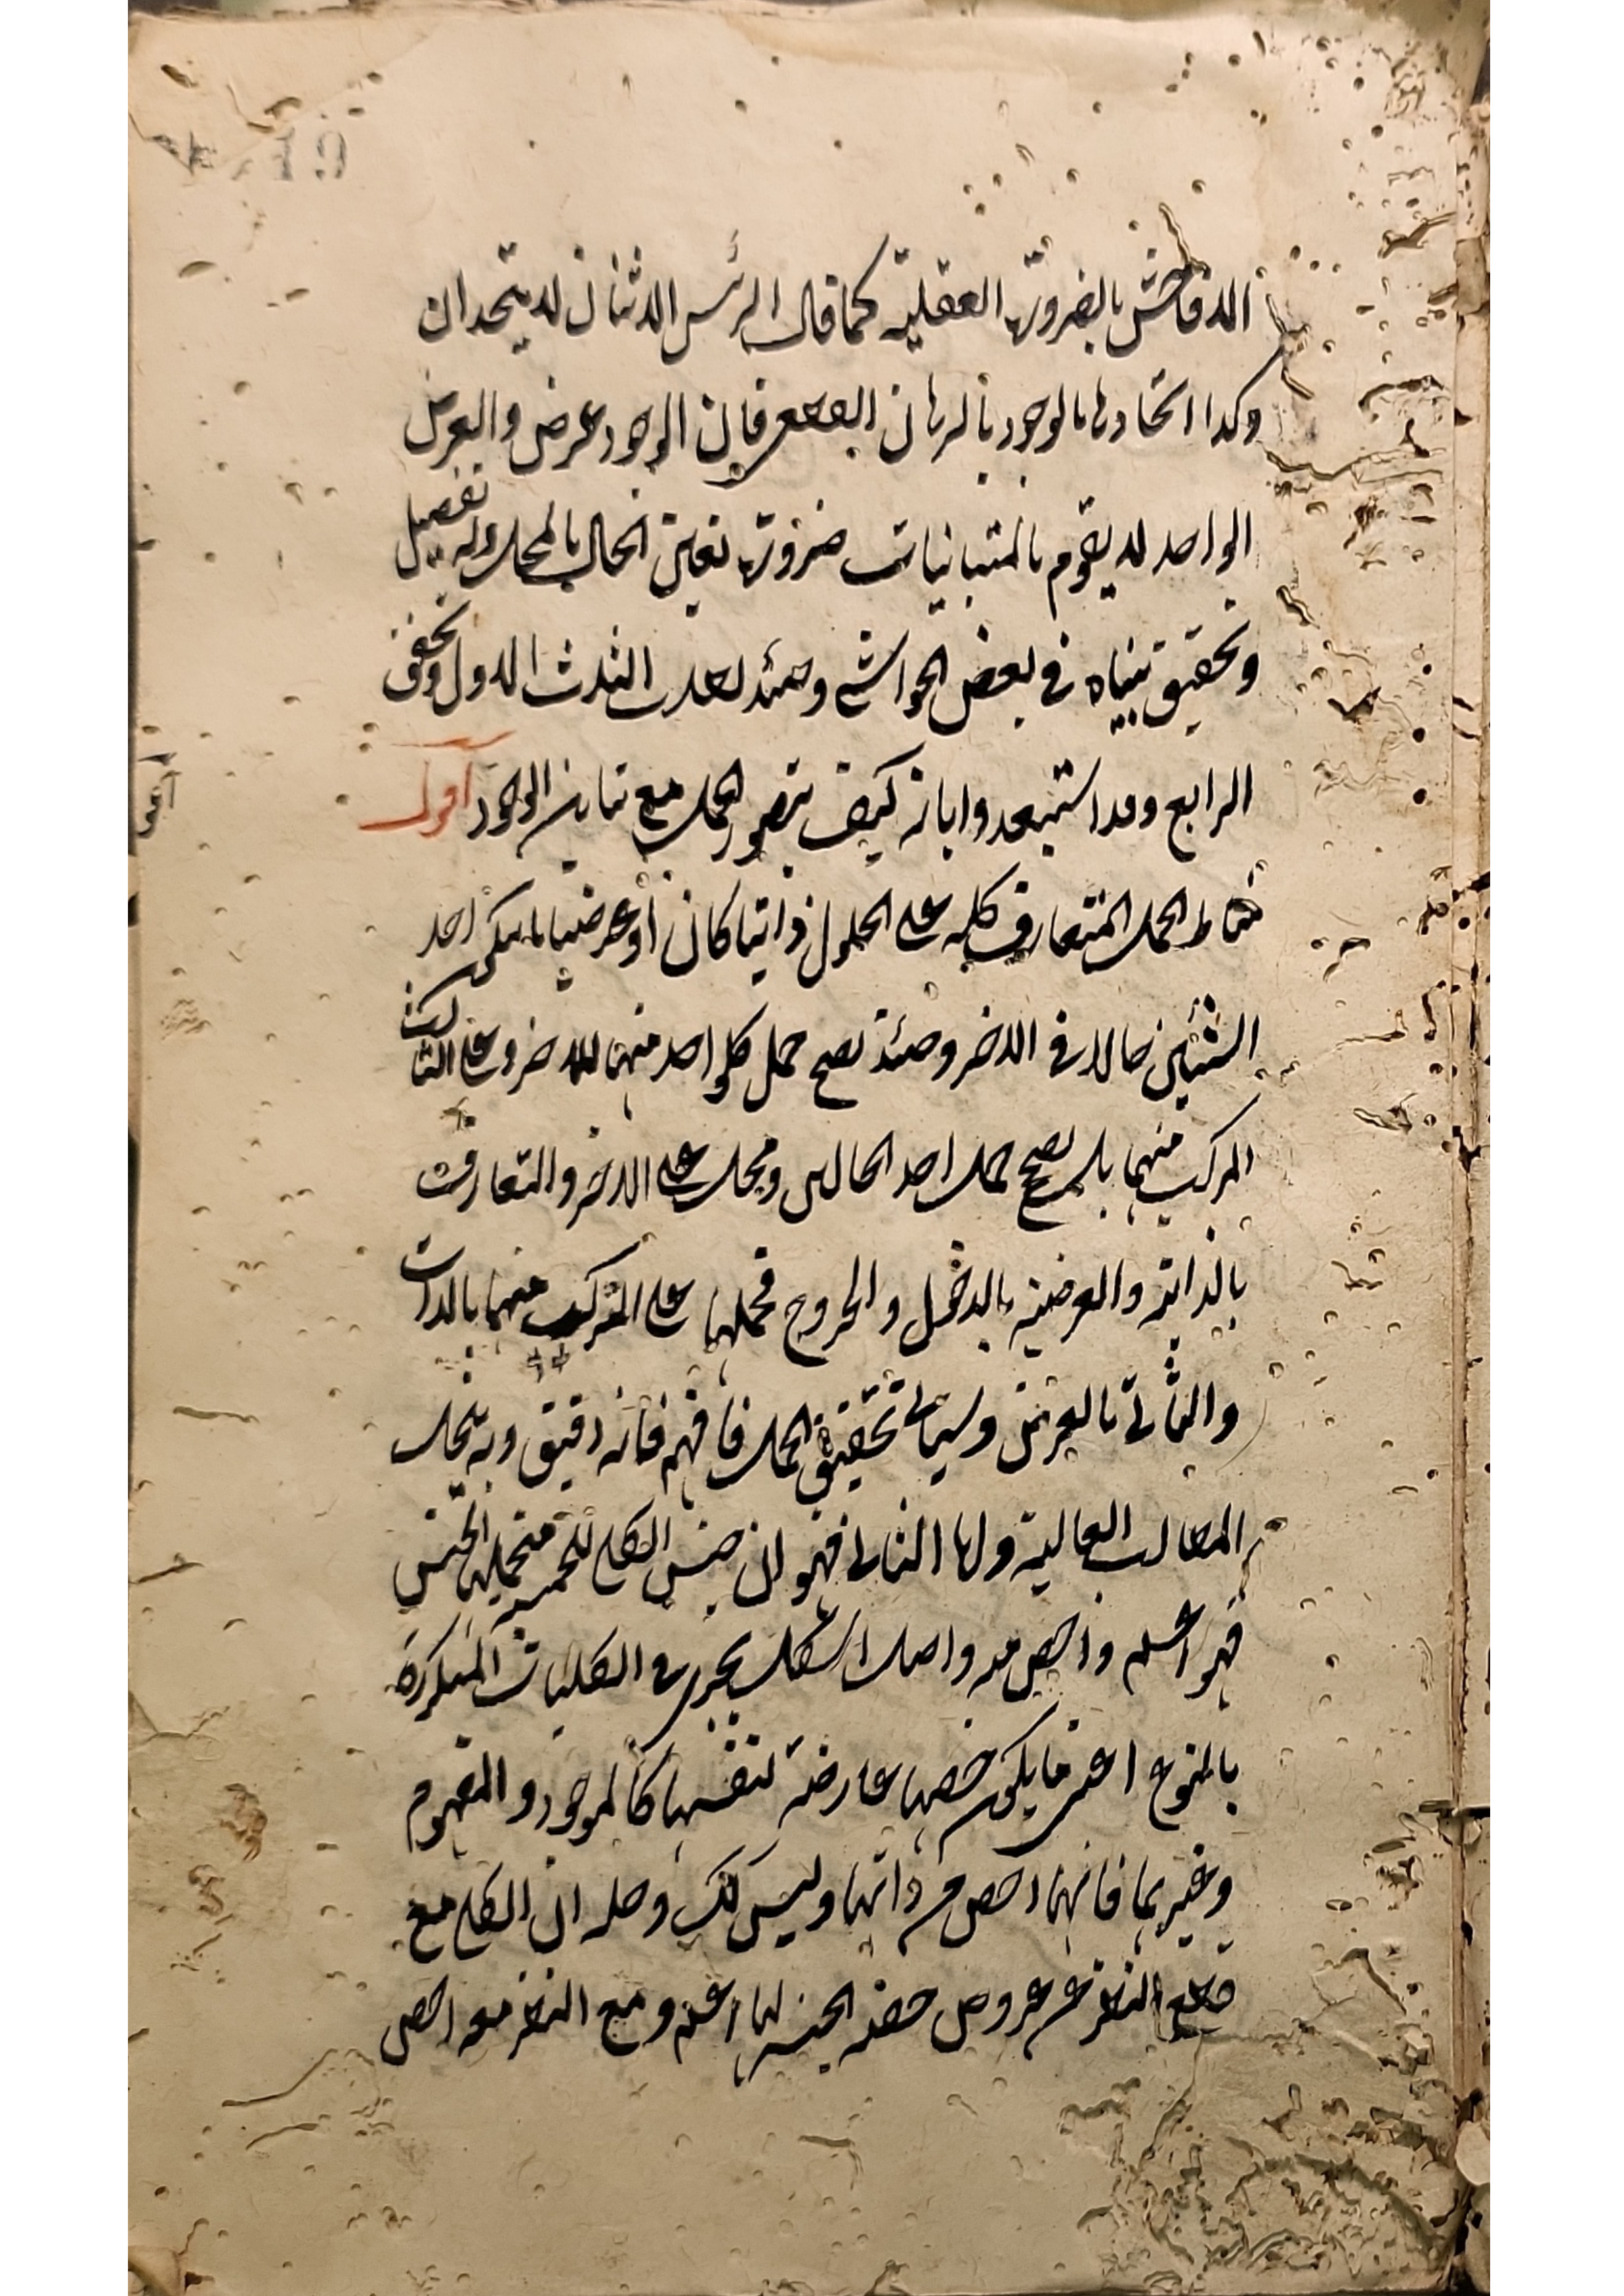 اللافاحش بالضرورة العقلية كما قال الرئيس الاثنان لا يتحدان
وكذا اتحادها بالوجود بالبرهان القطعي فان الوجود عرض والعرض
الواحد لا يقوم بالمتباينات ضرورة تعين الحال بالمحل وله تفصيل
وتحقيق بيناه في بعض الحواشي وحينئذ بطلت الثلاث الاول وتحقق
الرابع وقد استبعدوا بانه كيف يتصور الحمل مع تباين الوجود اقول
مناط الحمل المتعارف كله على الحلول ذاتيا كان او عرضيا لما يكن احد
الشيئين حالا في الاخر وحينئذ يصح حمل كل واحد منهما للاخر وعلى الثالث
المركب منهما بل يصح حمل احد الحالين ومحل على الاخر والتعارف
بالذاتية والعرضية بالدخول والخروج فحملها على المركب منهما بالذات
والثاني بالعرض وسياتي تحقيق الحمل فافهم فانه دقيق وبه يحل
المطالب العالية واما الثاني فهو ان جنس الكلي للخمسة فحملها الجنس
فهو اعم واخص منه واصل الاشكال يجري في الكليات المتكررة
بالنوع اعني ما يكون حصها عارضة لنفسها كالموجود والمفهوم
وغيرهما فانهما اخص من ذاتهما وليس كك وحله ان الكلي مع
قطع النظر عن عروض حصة الجنس لها اعم ومع النظر معه اخص